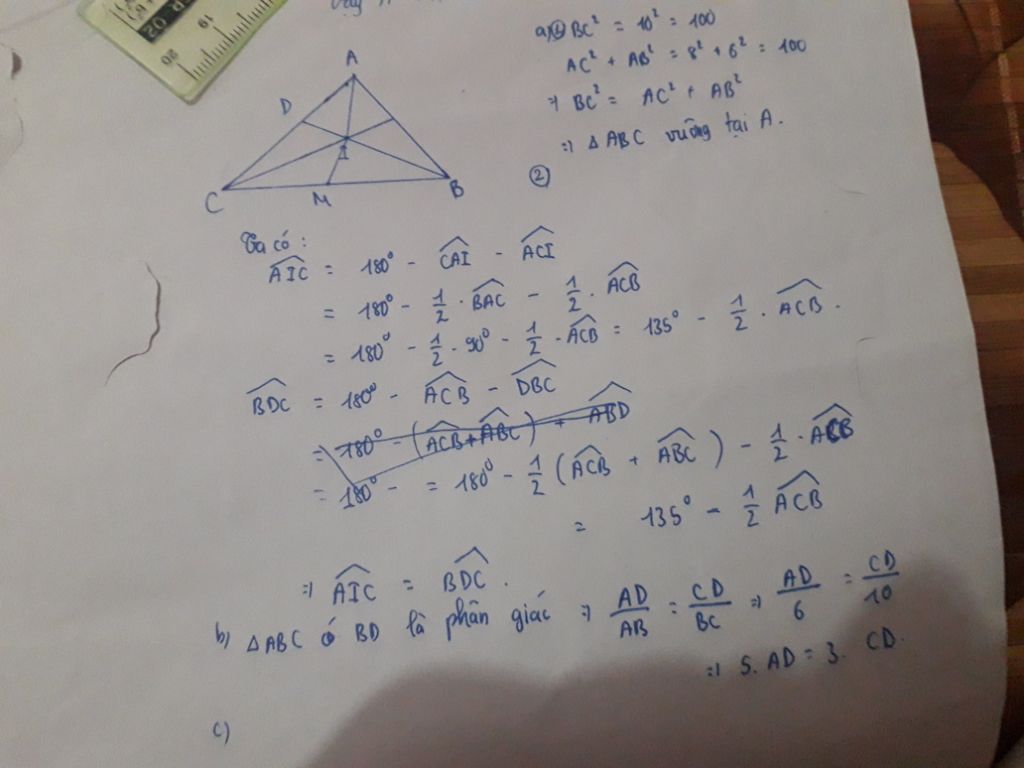 19
20
a) ① BC² = 10² = 100
AC² + AB² = 8² + 6² = 100
⇒ BC² = AC² + AB²
⇒ △ABC vuông tại A.
②
A
D
I
C
M
B
Ta có:
\widehat{AIC} = 180° - \widehat{CAI} - \widehat{ACI}
= 180° - 1/2 . \widehat{BAC} - 1/2 . \widehat{ACB}
= 180° - 1/2 . 90° - 1/2 . \widehat{ACB} = 135° - 1/2 . \widehat{ACB}.
\widehat{BDC} = 180° - \widehat{ACB} - \widehat{DBC}
= 180° - (\widehat{ACB} + \widehat{ABC}) + \widehat{ABD}
= 180° - = 180° - 1/2 (\widehat{ACB} + \widehat{ABC}) - 1/2 . \widehat{ACB}
= 135° - 1/2 \widehat{ACB}
⇒ \widehat{AIC} = \widehat{BDC}.
b) △ABC có BD là phân giác ⇒ AD/AB = CD/BC ⇒ AD/6 = CD/10
⇒ 5. AD = 3. CD.
c)